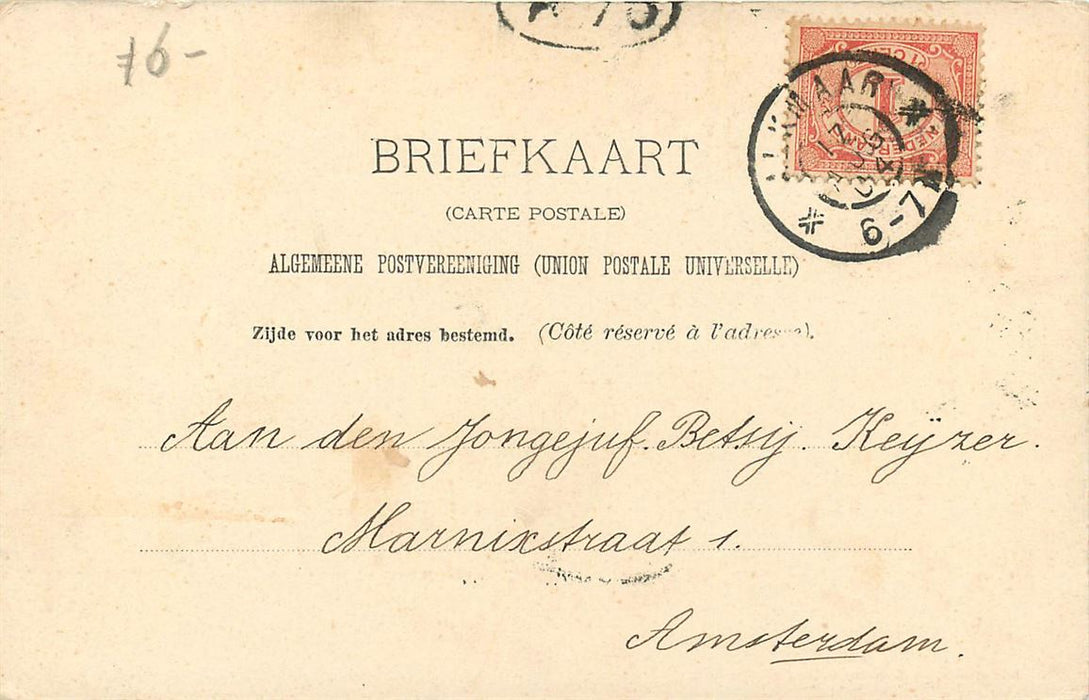 76-
BRIEFKAART
(CARTE POSTALE)
ALGEMEENE POSTVEREENIGING (UNION POSTALE UNIVERSELLE)
Zijde voor het adres bestemd. (Côté réservé à l'adresse).
ALKMAAR
6-7
1
NEDERLAND
Aan den Jongejuf. Betsij. Keÿzer.
Marnixstraat 1.
Amsterdam.